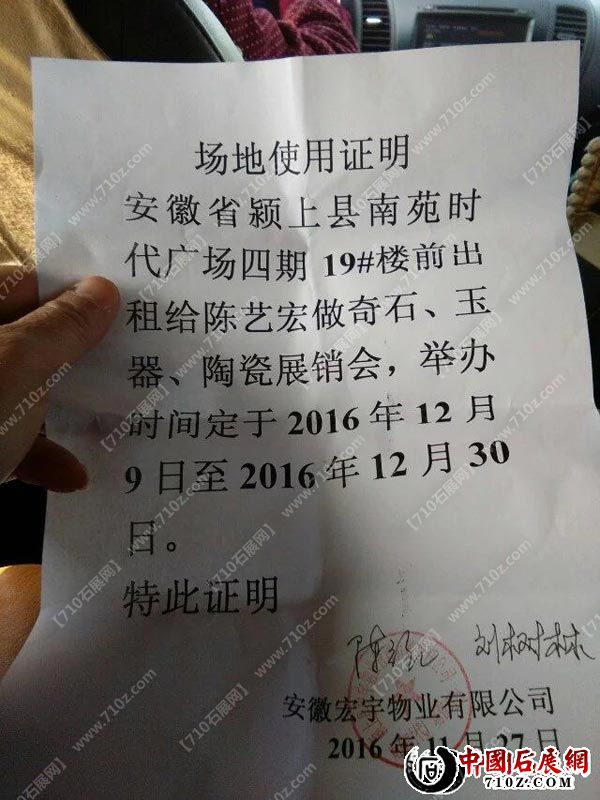 场地使用证明
安徽省颍上县南苑时
代广场四期 19#楼前出
租给陈艺宏做奇石、玉
器、陶瓷展销会，举办
时间定于 2016 年 12 月
9 日至 2016 年 12 月 30
日。
特此证明
刘树林
安徽宏宇物业有限公司
2016 年 11 月 27 日
中國石展網
710Z.COM
【710石展网】www.710z.com